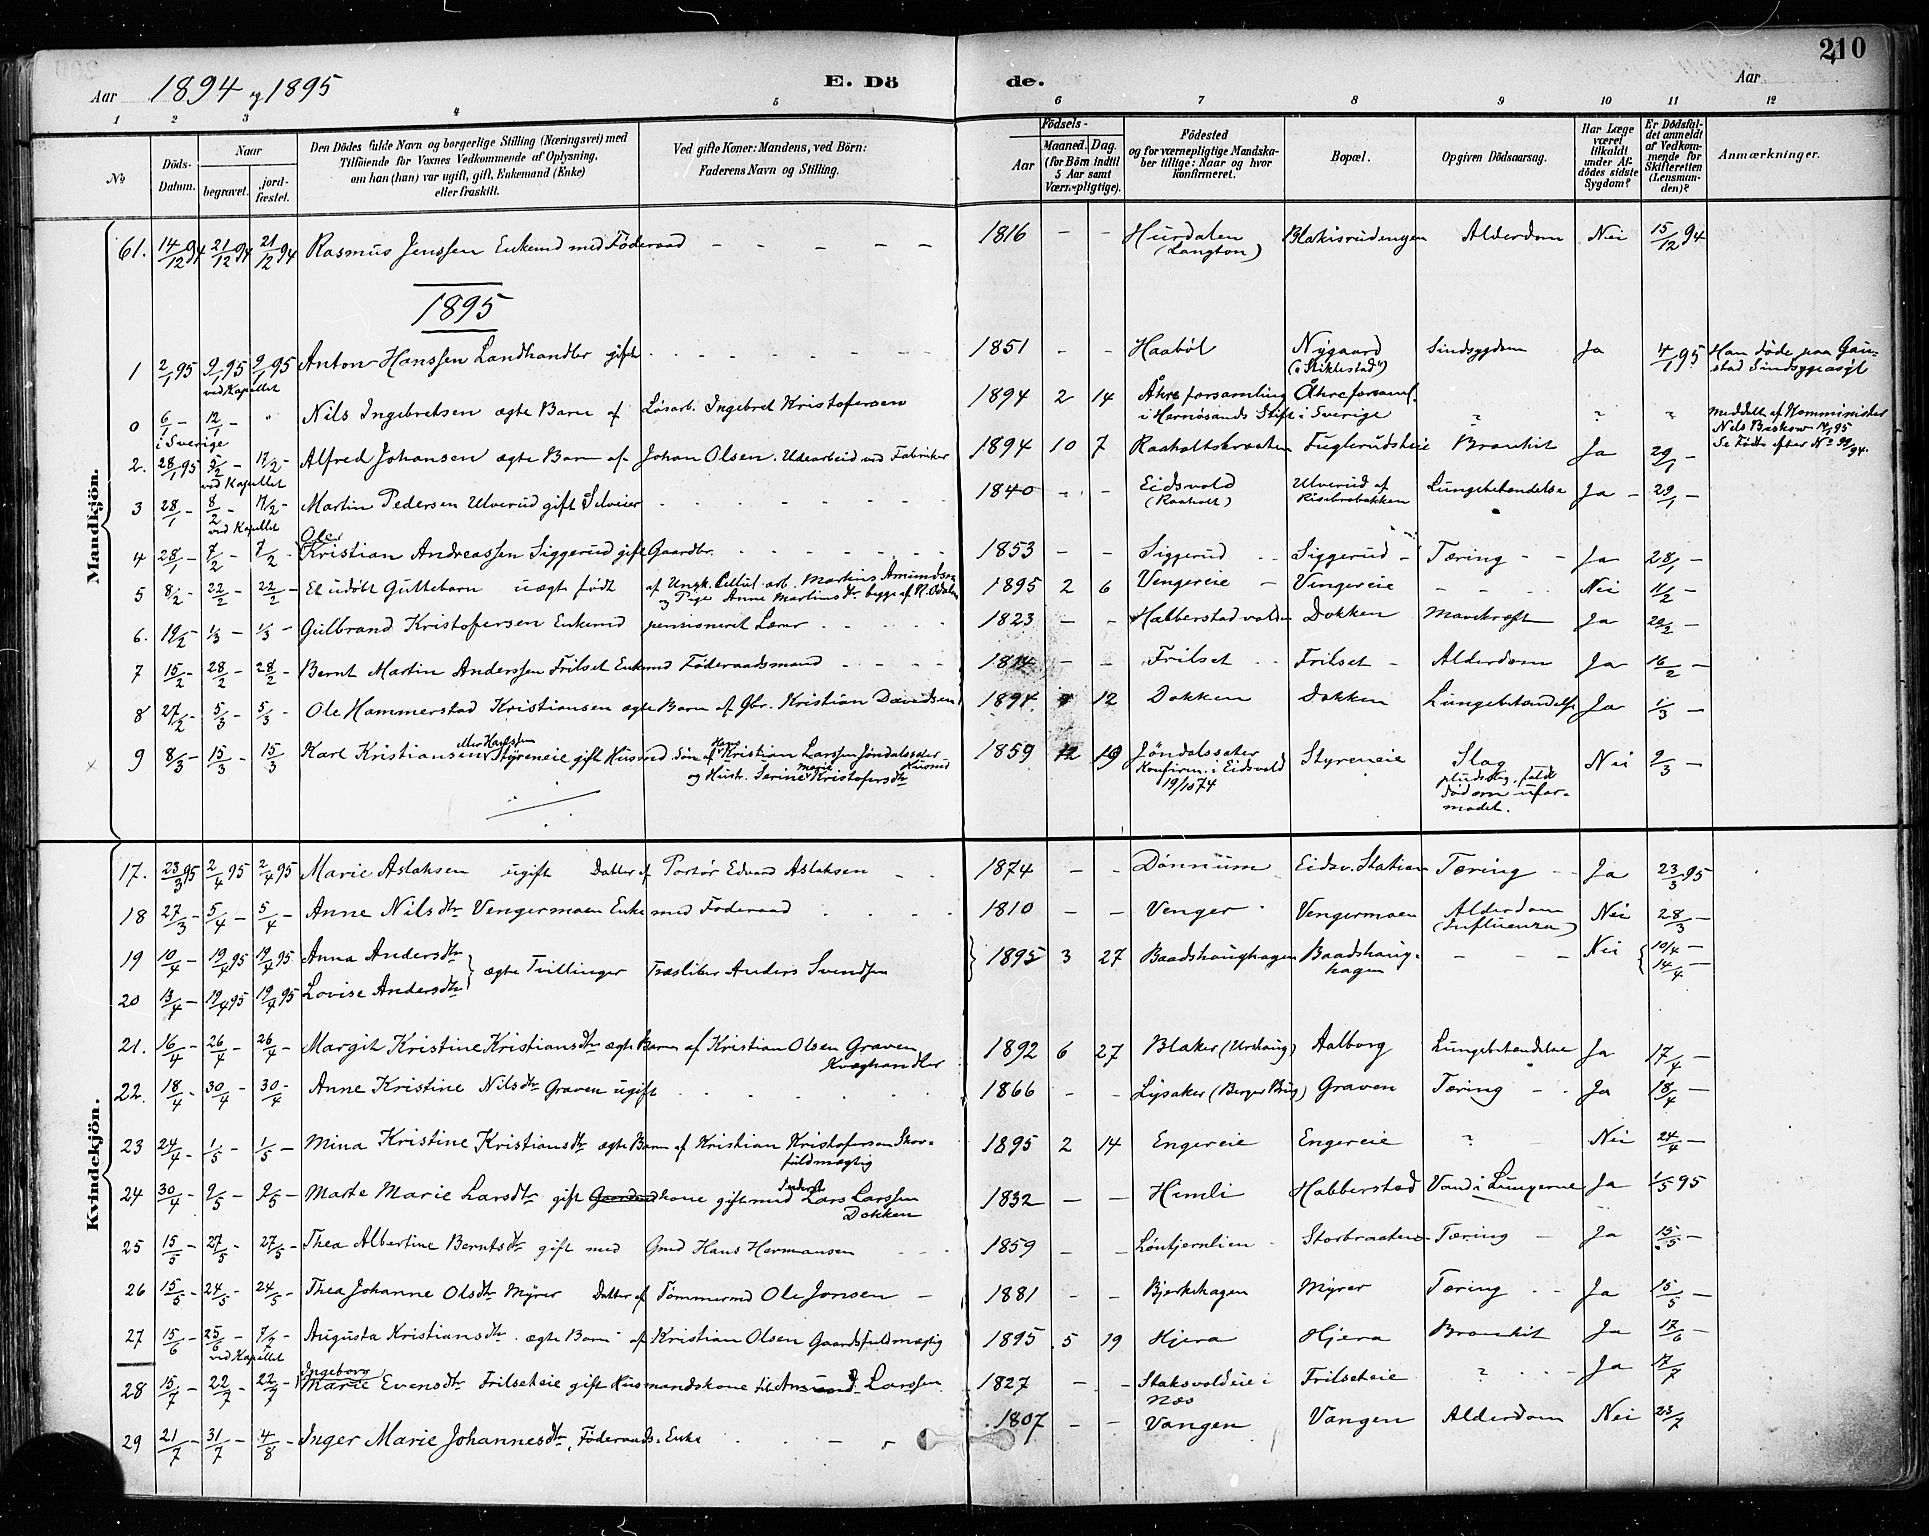 210
Aar 1894 og 1895 E. Dö de. Aar
1 2 3 4 5 6 7 8 9 10 11 12
No
Döds-Datum.
Naar
begravet. jordfæstet.
Den Dödes fulde Navn og borgerlige Stilling (Næringsvei) med
Tilföiende for Voxnes Vedkommende af Oplysning,
om han (hun) var ugift, gift, Enkemand (Enke)
eller fraskilt.
Ved gifte Koner: Mandens, ved Börn:
Faderens Navn og Stilling.
Födsels-
Aar
Maaned. Dag.
(for Börn indtil
5 Aar samt
Værnepligtige).
Födested
og for værnepligtige Mandska-
ber tillige: Naar og hvor
konfirmeret.
Bopæl.
Opgiven Dödsaarsag.
Har Læge
været
tilkaldt
under Af-
dödes sidste
Sygdom?
Er Dödsfal-
det anmeldt
af Vedkom-
mende for
Skifteretten
(Lensman-
den)?
Anmærkninger.
Mandkjön.
61. 14/12 94 21/12 94 21/12 94 Rasmus Jenssen Enkemd med Föderaad - - - - - 1816 - - Hurdalen Blakisrudengen Alderdom Nei 15/12 94
(Langton)
1895
1 2/1 95 9/1 95 9/1 95 Anton Hanssen Landhandler gift 1851 - - Haaböl Nygaard Sindsygdom Ja 4/1 95 Han döde paa Gau-
ved Kapellet (i Stiklestad) stad Sindsygeasyl
0 6/1 - 12/1 - " Nils Ingebretsen ægte Barn af Lösarb. Ingebret Kristofersen 1894 2 14 Åhre forsamling Åhre forsaml. ? ? " Meddelt af Komminister
i Sverige i Hernösands Stift i Sverige Nils Biskow 14/1 95
Se Födte efter No 99/94.
2. 28/1 95 5/2 - 17/2 - Alfred Johansen ægte Barn af Johan Olsen. Udearbeid ved Fabriker 1894 10 7 Raaholtsbraaten Fuglerudsteie Bronkit Ja 29/1 -
ved Kapellet
3 28/1 - 8/2 - 17/2 - Martin Pedersen Ulverud gift Selveier 1840 - - Eidsvold Ulverud af Lungebetendelse Ja - 29/1 -
ved Kapellet (Raaholt) Risebrobakken
Ole
4 28/1 - 7/2 - 7/2 - Kristian Andreassen Siggerud gift Gaardbr. 1853 - - Siggerud Siggerud - Tæring - - Ja 28/1 -
5 8/2 - 22/2 - 22/2 - Et udöbt Guttebarn uægte födt af Ungk. Cellul. arb. Martins Amundsen 1895 2 6 Vengereie - Vengereie - - Nei 11/2 -
og Pige Anne Martins dtr begge af N. Odalen
6. 19/2 - 1/3 - 1/3 - Gulbrand Kristofersen Enkemd pensioneret Lærer 1823 - - Habberstadvolden Dokken Mavekræft Ja 20/2 -
7 15/2 - 28/2 - 28/2 - Bernt Martin Anderssen Frilset Enkemd Föderaadsmand - - 1814 - - Frilset Frilset - Alderdom Ja 16/2 -
8 27/2 - 5/3 - 5/3 - Ole Hammerstad Kristiansen ægte Barn af Gbr. Kristian Davidsen 1894 12 Dokken Dokken Lungebetændelse Ja 1/3 -
eller Karlssen Hans
9 8/3 - 15/3 - 15/3 Karl Kristiansen Styreneie gift Husmd Sön af Kristian Larssen Jöndalssæter 1859 12 19 Jöndalssæter Styreneie Slag Nei 9/3 -
Husmd
og Hust. Serine Marie Kristofers dtr Konfirm. i Eidsvold pludselig, faldt
19/10 74 död om ufor-
modet.
Kvindekjön.
17. 23/3 95 2/4 95 2/4 95 Marie Aslaksen ugift Datter af Portör Edvard Aslaksen - - 1874 - - Dönnum Eidsv. Station Tæring - Ja 23/3 95
18 27/3 - 5/4 - 5/4 - Anne Nils dtr Vengermoen Enke med Föderaad 1810 - - Venger Vengermoen Alderdom Nei 28/3 -
(Influenza)
19 10/4 - 19/4 95 19/4 95 Anna Anders dtr ægte Tvillinger Træsliber Anders Svendsen 1895 3 27 Baadshaughagen Baadshaug- - - - Nei 10/4 -
hagen 14/4 -
20 13/4 - 19/4 95 19/4 95 Lovise Anders dtr
21. 16/4 - 26/4 - 26/4 - Margit Kristine Kristians dtr ægte Barn af Kristian Olsen Graven 1892 6 27 Blaker (Urshaug) Aalborg Lungebetendelse Ja 17/4 -
Kvæghandler
22. 18/4 - 30/4 - 30/4 - Anne Kristine Nils dtr Graven ugift 1866 - - Lysaker (Berger Brug) Graven Tæring - Ja 18/4 -
23 24/4 - 1/5 - 1/5 - Mina Kristine Kristians dtr ægte Barn af Kristian Kristofersen Skov- 1895 2 14 Engereie Engereie ? Nei 24/4 -
fuldmægtig
24 30/4 - 9/5 - 9/5 - Marte Marie Lars dtr gift Gaardmdkone gift med Inderst Lars Larssen 1832 - - Himli Habberstad Vand i Lungerne Ja 1/5 95
Dokken
25 15/5 - 27/5 - 27/5 - Thea Albertine Bernts dtr gift med Gmd Hans Hermansen 1859 - - Löntjernlien Storbraaten Tæring - Ja 15/5 -
26 15/5 - 24/5 - 24/5 - Thea Johanne Ols dtr Myrer Datter af Tömmermd Ole Jonsen - 1881 - - Bjerkehagen Myrer Tæring Ja 15/5 -
27 15/6 - 25/6 - 7/7 - Augusta Kristians dtr ægte Barn af Kristian Olsen Gaardsfuldmægtig 1895 5 19 Hjera Hjera Bronkit Ja 17/6 -
ved Kapellet
Ingeborg
28 15/7 - 22/7 - 22/7 - Marie Evens dtr Frilseteie gift Husmandskone til Amund Larssen 1827 - - Staksvoldeie i Frilseteie ? Ja 17/7
Næs
29 21/7 - 31/7 - 4/8 - Inger Marie Johannes dtr, Föderaads Enke 1807 - - Vangen Vangen Alderdom Nei 23/7